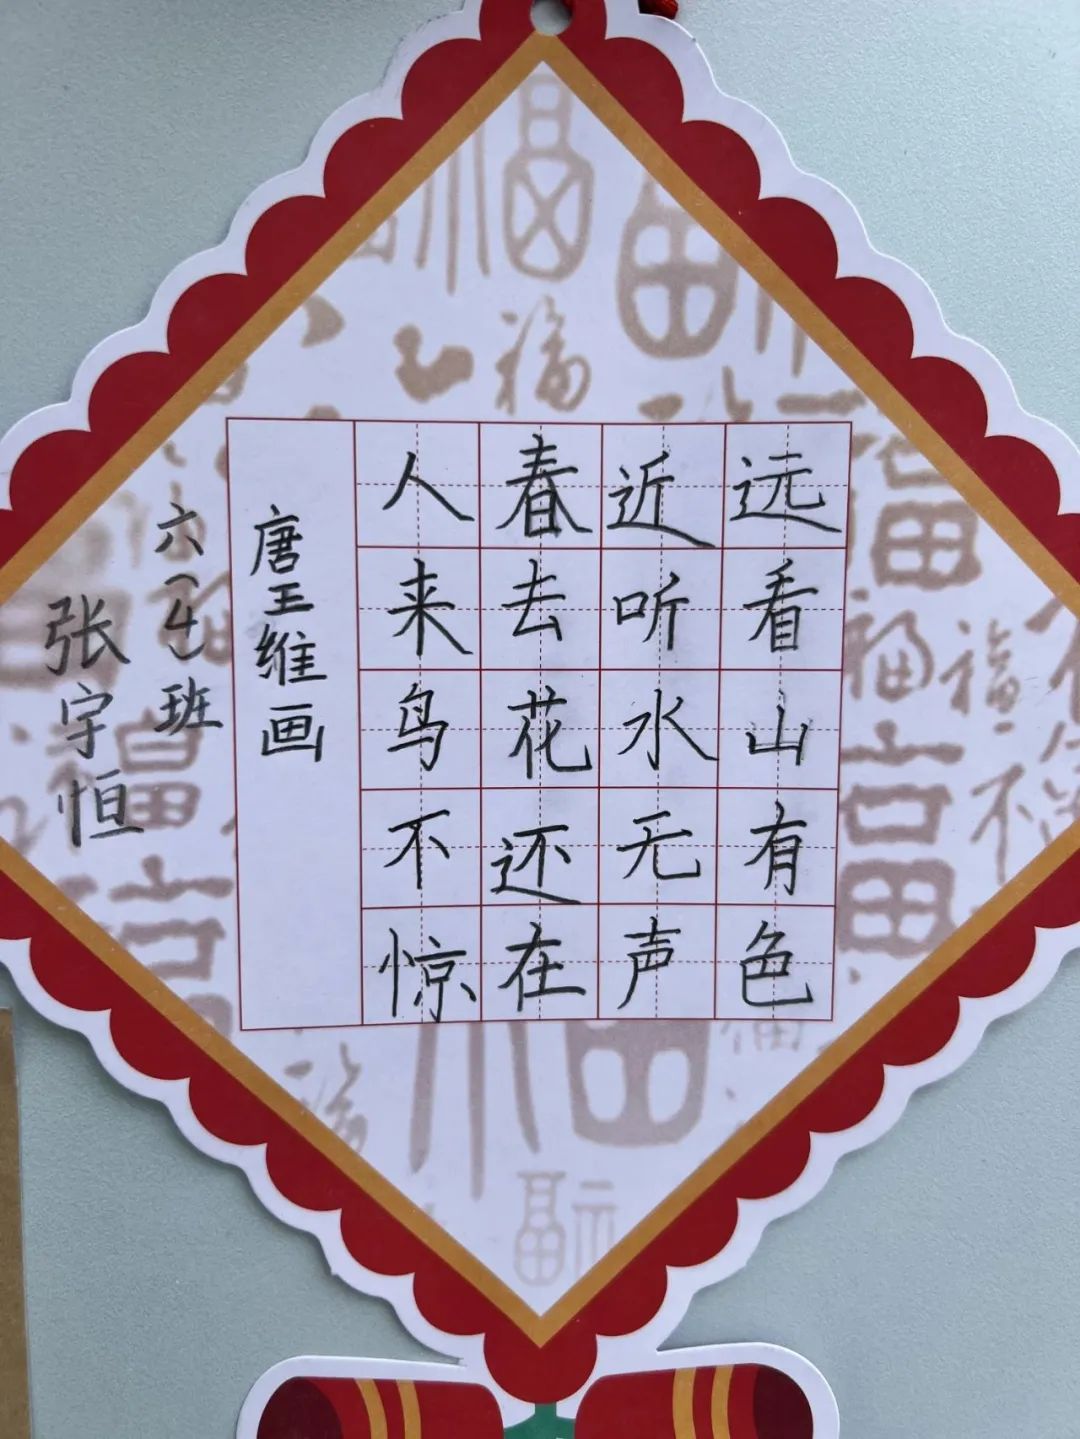 远看山有色
近听水无声
春去花还在
人来鸟不惊
唐王维画
六(4)班
张宇恒